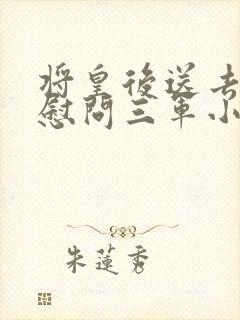 将皇後送去
慰問三軍小
朱蓮秀